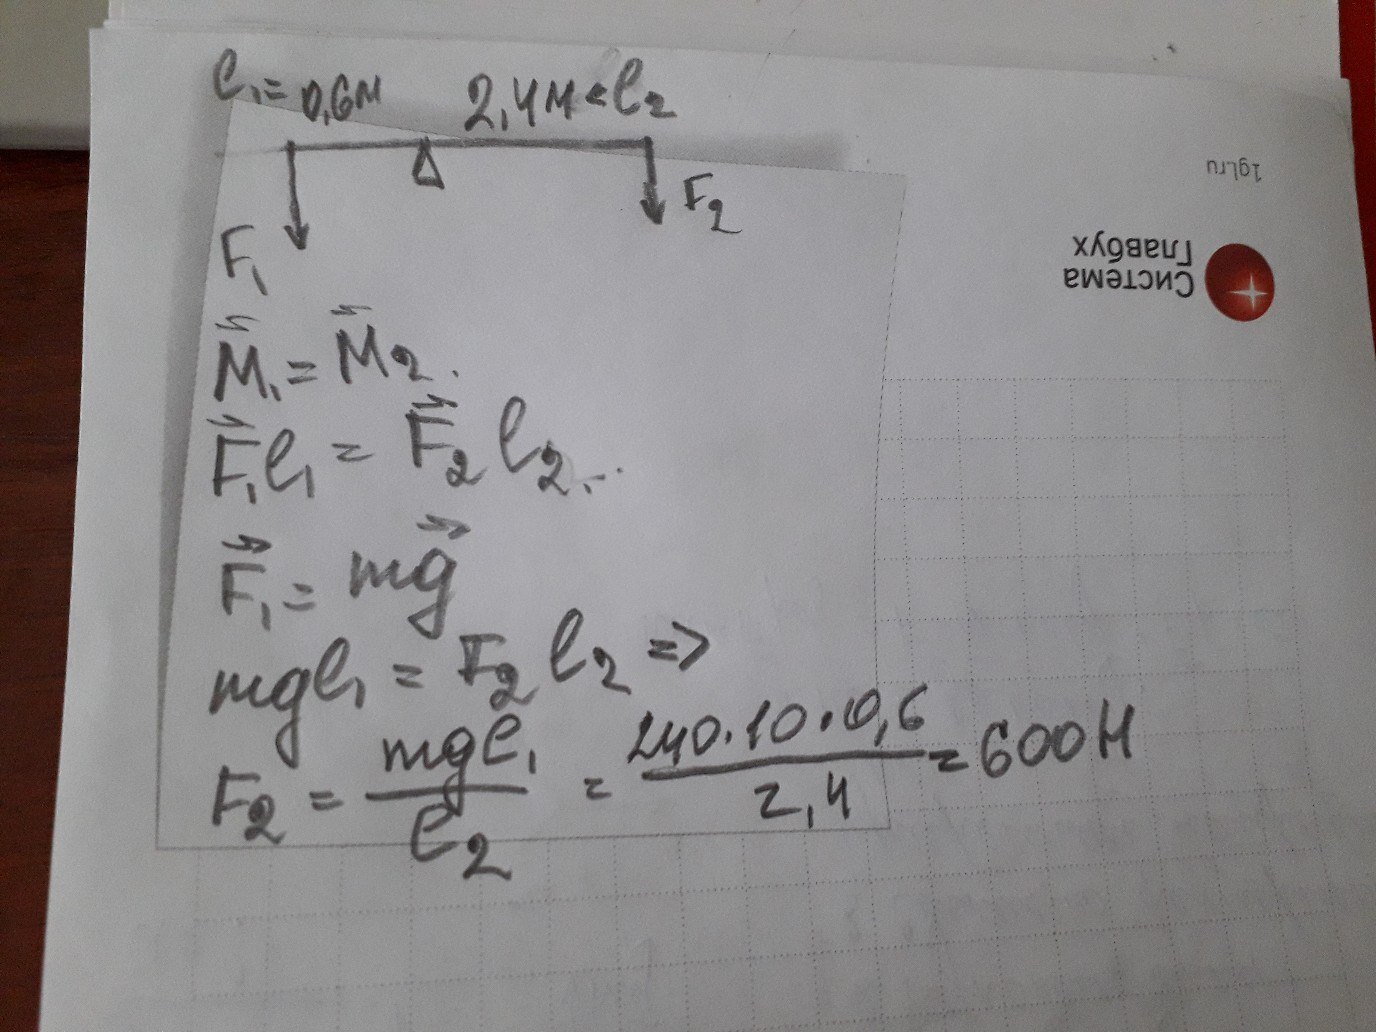 l₁ = 0,6м 2,4м = l₂
F₁
F₂
M₁ = M₂.
F₁l₁ = F₂ l₂.
F₁ = mg
mgl₁ = F₂ l₂ =>
F₂ = mgl₁ / l₂ = 240·10·0,6 / 2,4 = 600Н
1gl.ru
Система
Главбух